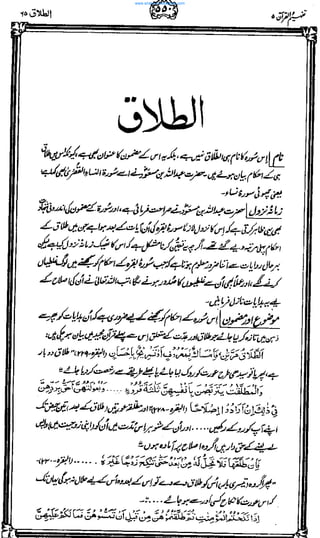 الطلاق ۶۵
۵۵۰
تفہیم القرآن ۵
الطلاق
نام اس سورۃ کا نام ہی الطلاق نہیں ہے، بلکہ یہ اس کے مضمون کا عنوان بھی ہے، کیونکہ اس میں طلاق
ہی کے احکام بیان ہوئے ہیں۔ حضرت عبداللہ بن مسعودؓ نے اسے سورۃ النساء القصریٰ بھی کہا ہے
یعنی چھوٹی سورۃ نساء۔
زمانۂ نزول حضرت عبداللہ بن مسعودؓ نے صراحت فرمائی ہے، اور سورۃ کے مضمون کی اندرونی شہادت
بھی یہی ظاہر کرتی ہے کہ اس کا نزول لازماً سورۃ بقرہ کی اُن آیات کے بعد ہوا ہے جن میں طلاق کے
احکام پہلی مرتبہ دیے گئے تھے۔ اگرچہ یہ تعین کرنا مشکل ہے کہ اس کا ٹھیک زمانۂ نزول کیا ہے لیکن
بہرحال روایات سے اتنا ضرور معلوم ہوتا ہے کہ جب سورۃ بقرہ کے احکام کو سمجھنے میں لوگ غلطیاں
کرنے لگے، اور عملاً بھی اُن سے غلطیوں کا صدور ہونے لگا، تب اللہ تعالیٰ نے اُن کی اصلاح کے
لیے یہ ہدایات نازل فرمائیں۔
موضوع اور مضمون اس سورۃ کے احکام کو سمجھنے کے لیے ضروری ہے کہ اُن ہدایات کو پھر سے
ذہن میں تازہ کر لیا جائے جو طلاق اور عدت کے متعلق اس سے پہلے قرآن مجید میں بیان ہو چکی ہیں:
اَلطَّلَاقُ مَرَّتٰنِ فَاِمْسَاكٌۢ بِمَعْرُوْفٍ اَوْ تَسْرِيْحٌۢ بِاِحْسَانٍ (البقرہ۔۲۲۹) طلاق دو بار
ہے، پھر یا تو سیدھی طرح عورت کو روک لیا جائے یا بھلے طریقے سے رخصت کر دیا جائے
وَالْمُطَلَّقٰتُ يَتَرَبَّصْنَ بِاَنْفُسِهِنَّ ثَلٰثَةَ قُرُوْٓءٍ ..... وَبُعُوْلَتُهُنَّ اَحَقُّ بِرَدِّهِنَّ
فِيْ ذٰلِكَ اِنْ اَرَادُوْٓا اِصْلَاحًا (البقرہ۔۲۲۸) اور مطلقہ عورتیں (طلاق کے بعد) تین حیض تک
اپنے آپ کو روکے رکھیں ..... اور اُن کے شوہر اس مدت میں اُن کو (اپنی زوجیت میں) واپس
لے لینے کے حق دار ہیں اگر وہ اصلاح پر آمادہ ہوں
فَاِنْ طَلَّقَهَا فَلَا تَحِلُّ لَهٗ مِنْۢ بَعْدُ حَتّٰى تَنْكِحَ زَوْجًا غَيْرَهٗ ..... (البقرہ۔۲۳۰)
پھر اگر وہ (تیسری بار) اس کو طلاق دے دے تو اس کے بعد وہ اُس کے لیے حلال نہ ہوگی یہاں تک
کہ اس عورت کا نکاح کسی اور سے ہو جائے .....
اِذَا نَكَحْتُمُ الْمُؤْمِنٰتِ ثُمَّ طَلَّقْتُمُوْهُنَّ مِنْ قَبْلِ اَنْ تَمَسُّوْهُنَّ فَمَا لَكُمْ عَلَيْهِنَّ